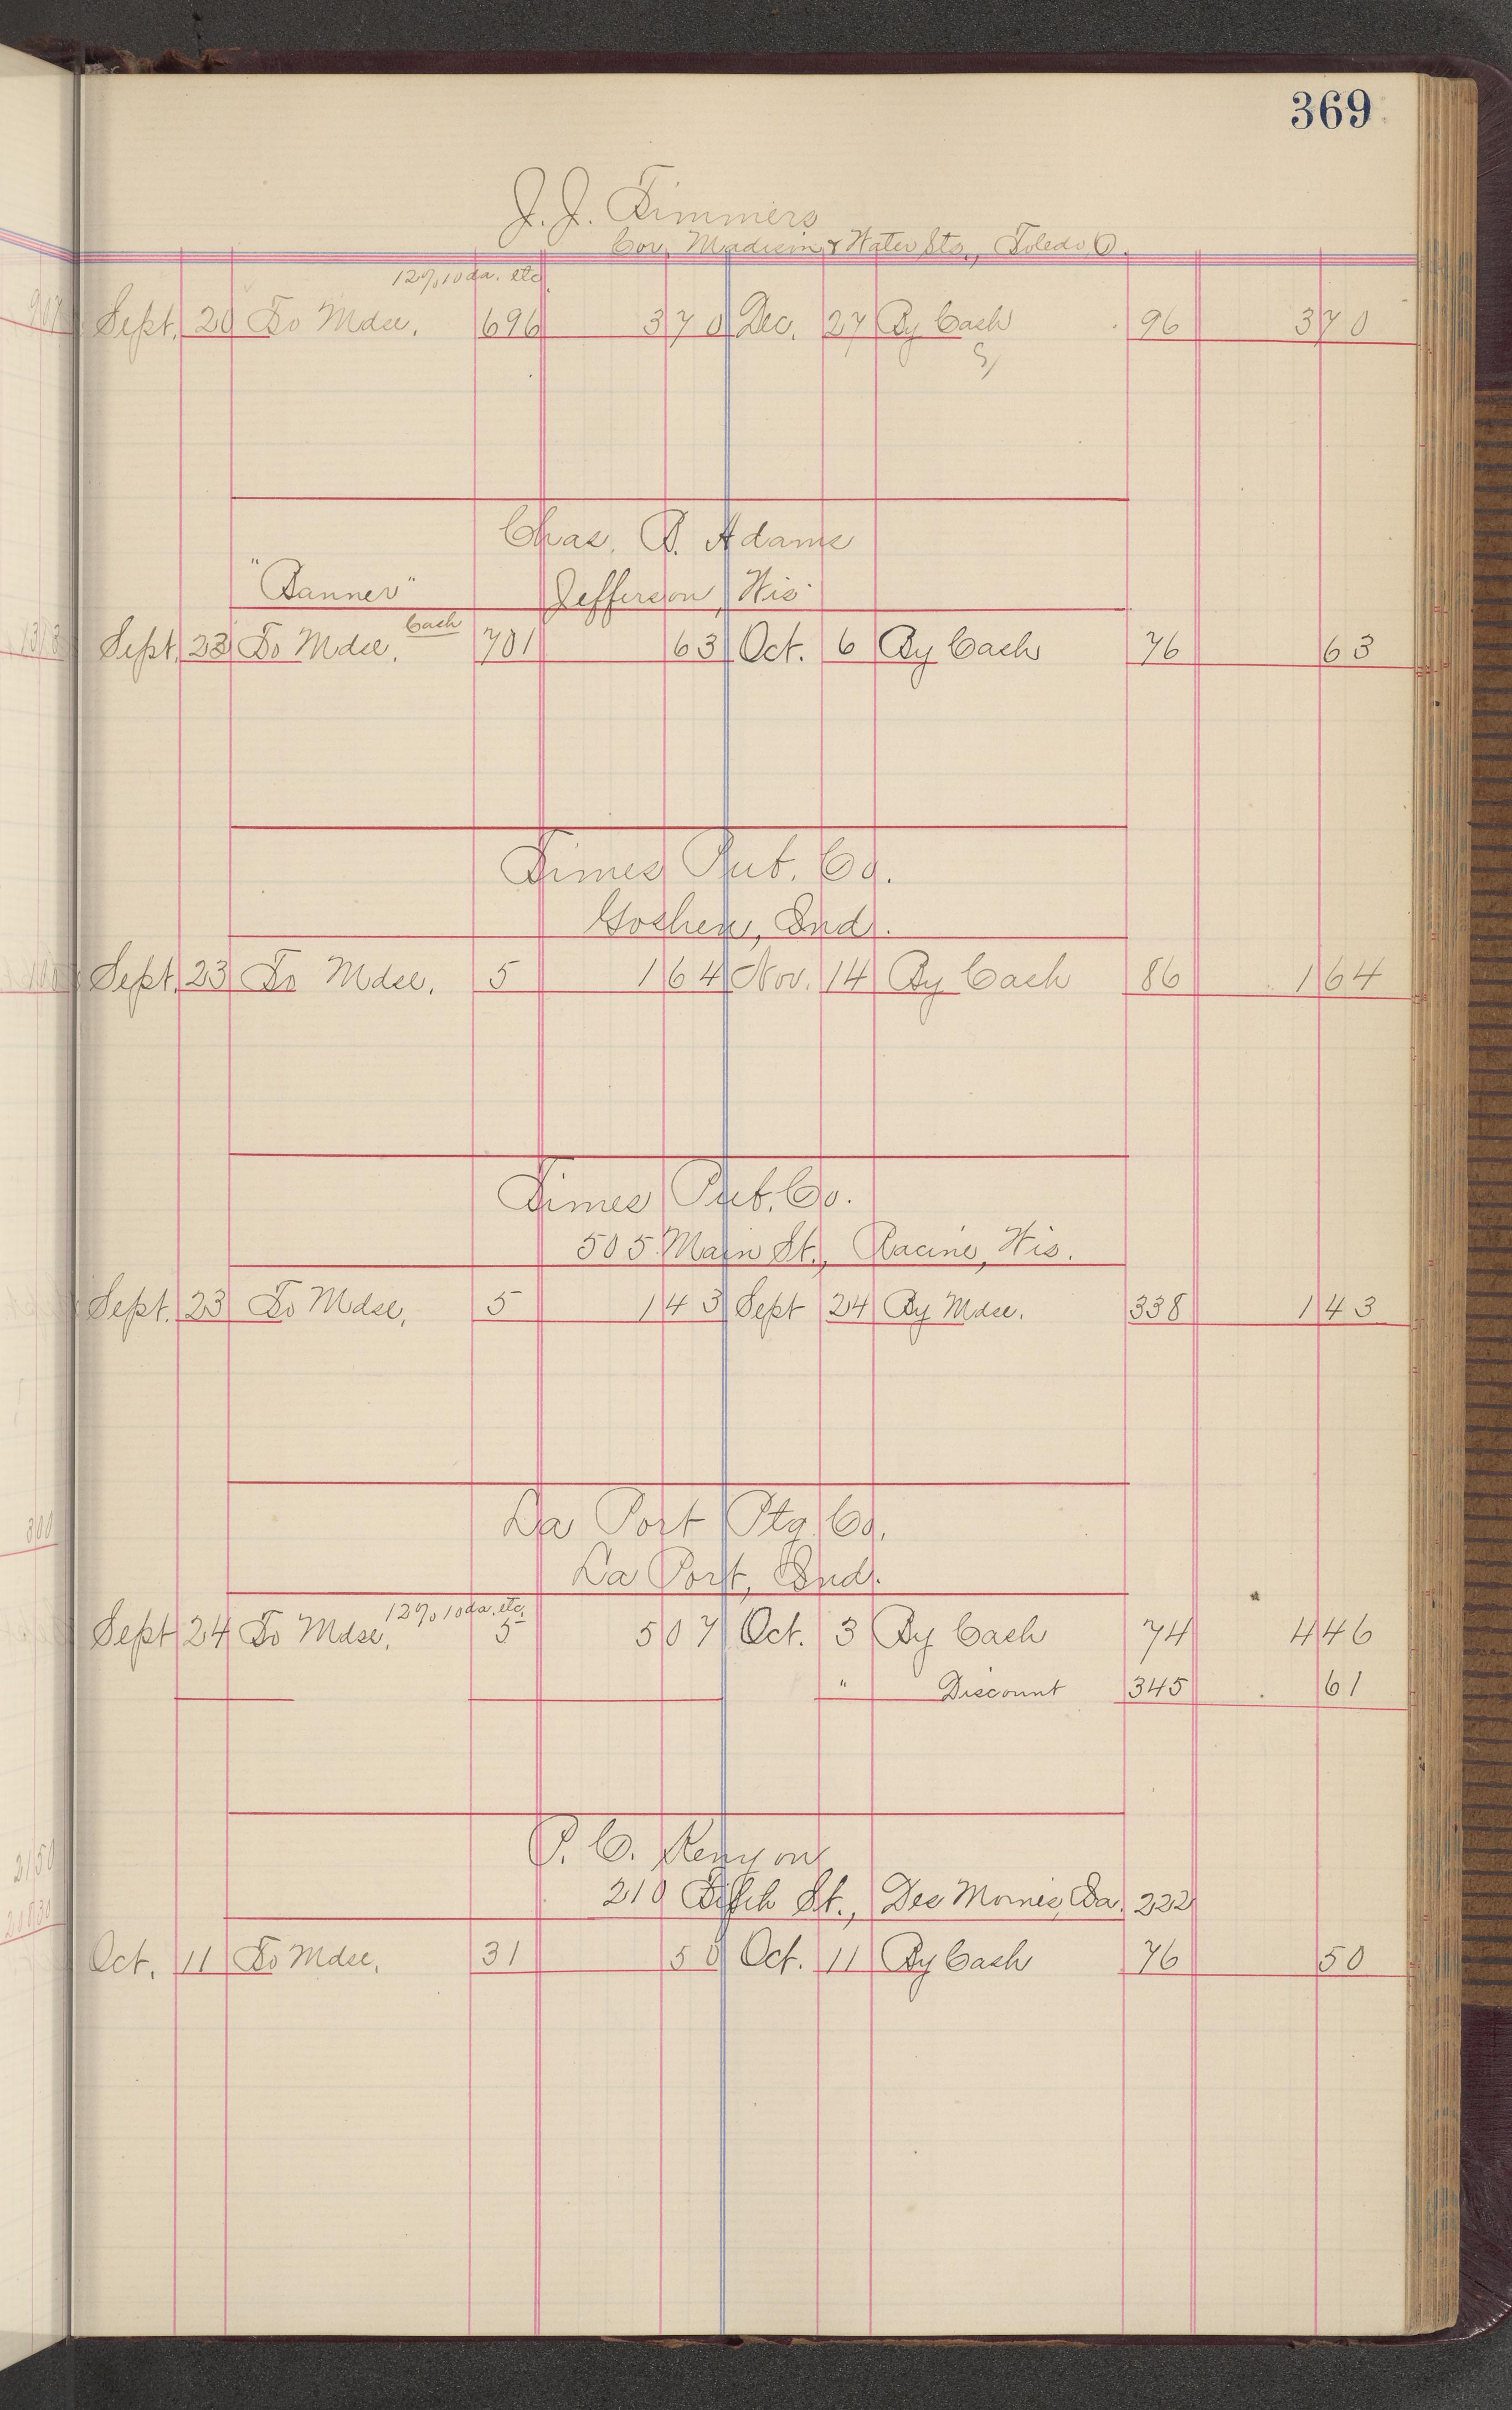 369
J. J. Timmers
Cor. Madison & Water Sts., Toledo, O.
12% 10 da. etc.
Sept. 20 To Mdse. 696 3 70 Dec. 27 By Cash 96 3 70
Chas. B. Adams
"Banner" Jefferson, Wis.
Cash
Sept. 23 To Mdse. 701 63 Oct. 6 By Cash 76 63
Times Pub. Co.
Goshen, Ind.
Sept. 23 To Mdse. 5 1 64 Nov. 14 By Cash 86 1 64
Times Pub. Co.
505 Main St., Racine, Wis.
Sept. 23 To Mdse. 5 1 43 Sept 24 By Mdse. 338 1 43
La Port Ptg. Co.
La Port, Ind.
12% 10 da. etc.
Sept 24 To Mdse. 5 5 07 Oct. 3 By Cash 74 4 46
" Discount 345 61
P. C. Kenyon
210 Fifth St., Des Moines, Ia. 222
Oct. 11 To Mdse. 31 50 Oct. 11 By Cash 76 50